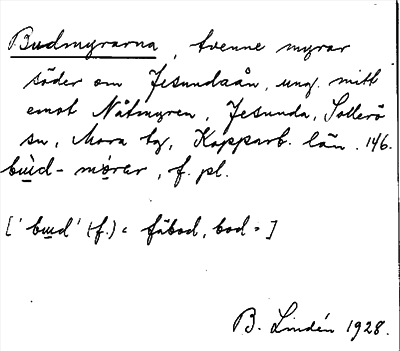 Budmyrarna, tvenne myrar
söder om Jesundaån, ung. mitt
emot Nåtmyren, Jesunda, Sollerö
sn, Mora tg, Kopparb. län. 146.
bùd-mörar, f. pl.
['bud' (f.) = fäbod, bod =]
B. Lindén 1928.